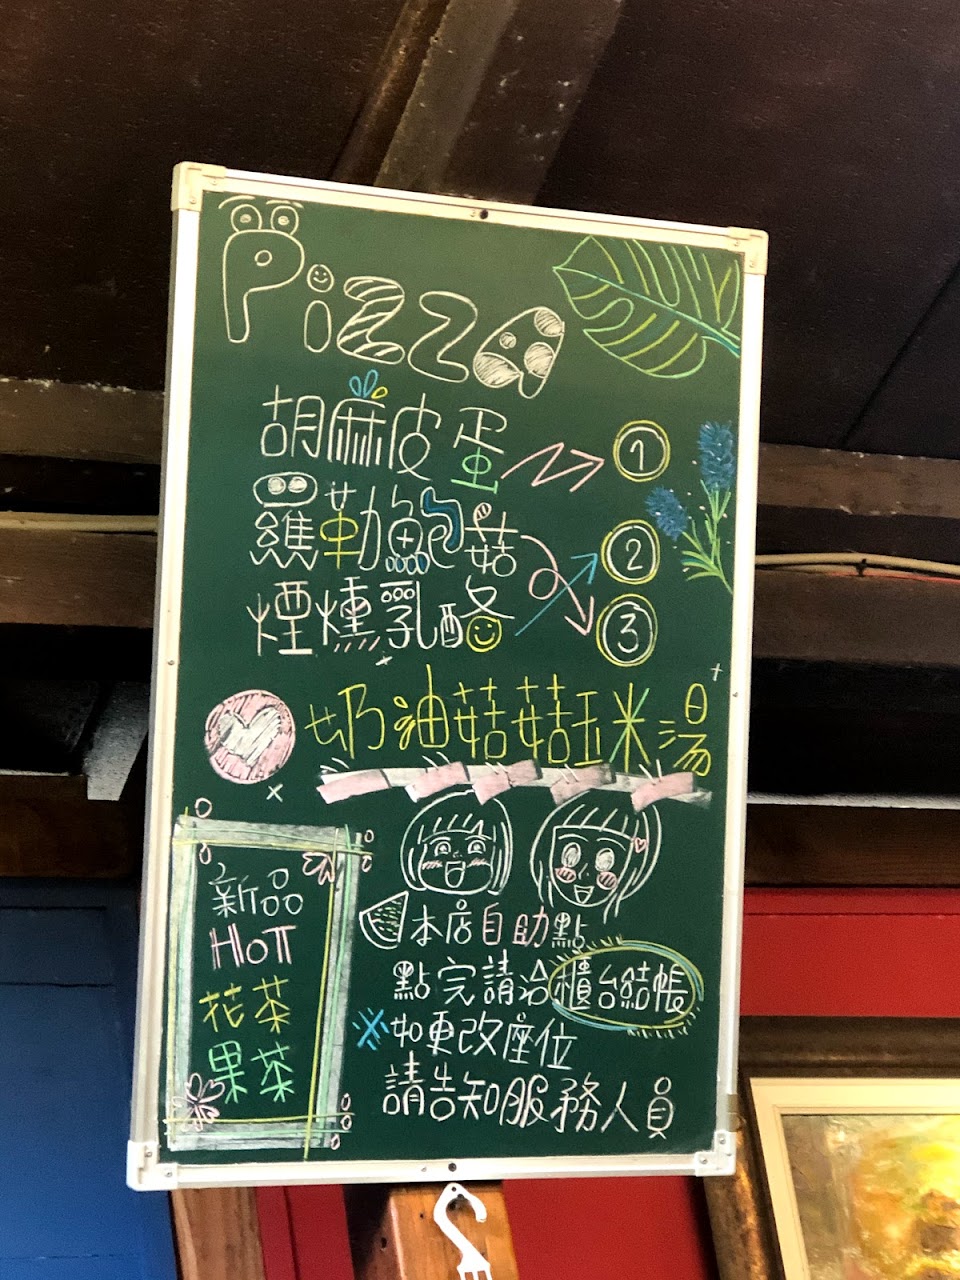 Pizza
胡麻皮蛋 ①
羅勒鮑菇 ②
煙燻乳酪 ③
奶油菇菇玉米湯
新品
HOT
花茶
果茶
本店自助點
點完請洽櫃台結帳
※如更改座位
請告知服務人員